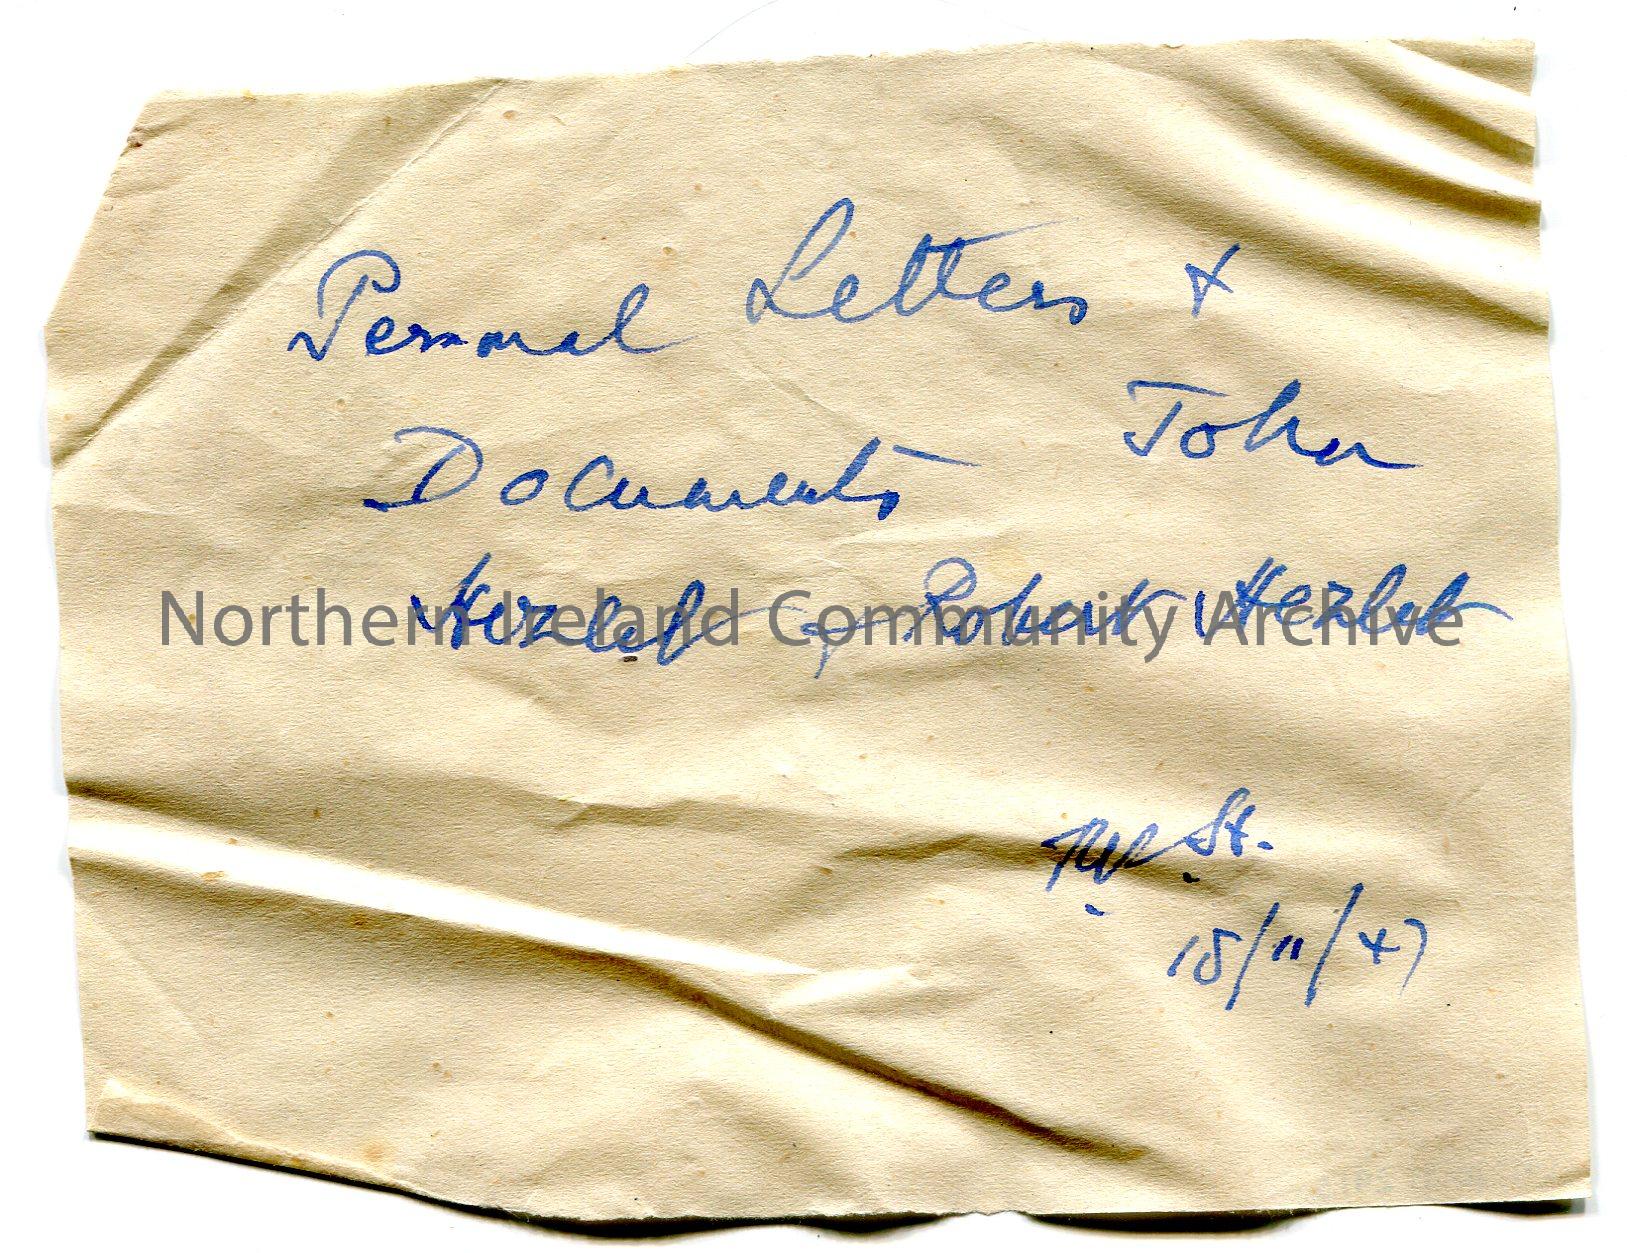 Personal Letters +
Documents John
Hezlet + Robert Hezlet
Northern Ireland Community Archive
St.
15/11/47